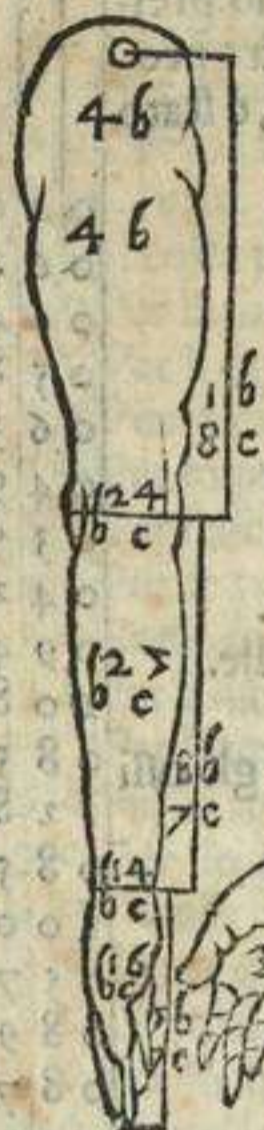 4 b
4 b
1 b
8 c
(2 4
b c
(2
b c
8 b
7 c
(1 4
b c
(1 6
b c
b
c
3